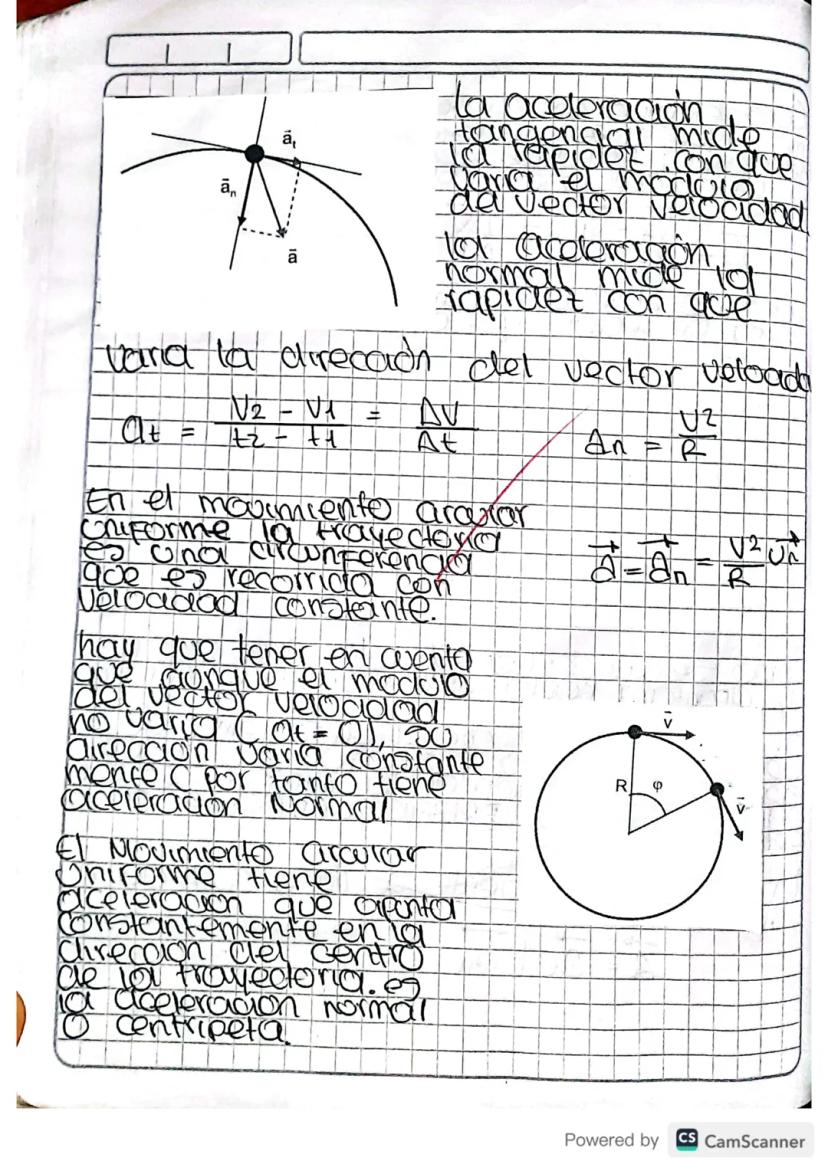 a⃗t
a⃗n
a⃗
La aceleración
tangencial mide
la rapidez con que
varia el modulo
del vector velocidad
la aceleración
normal mide la
rapidez con que
varia la dirección del vector velocidad
at = V2 - V1 / t2 - t1 = ΔV / Δt
An = V² / R
En el movimiento circular
uniforme la trayectoria
es una circunferencia
que es recorrida con
velocidad constante.
a⃗ = a⃗n = V² / R u⃗n
hay que tener en cuenta
que aunque el modulo
del vector velocidad
no varia ( at = 0), su
dirección varia constante
mente ( por tanto tiene
aceleracion Normal
v⃗
R φ
v⃗
El Movimiento circular
Uniforme tiene
aceleracion que apunta
constantemente en la
direccion del centro
de la trayectoria. es
la aceleracion normal
o centripeta.
Powered by CS CamScanner